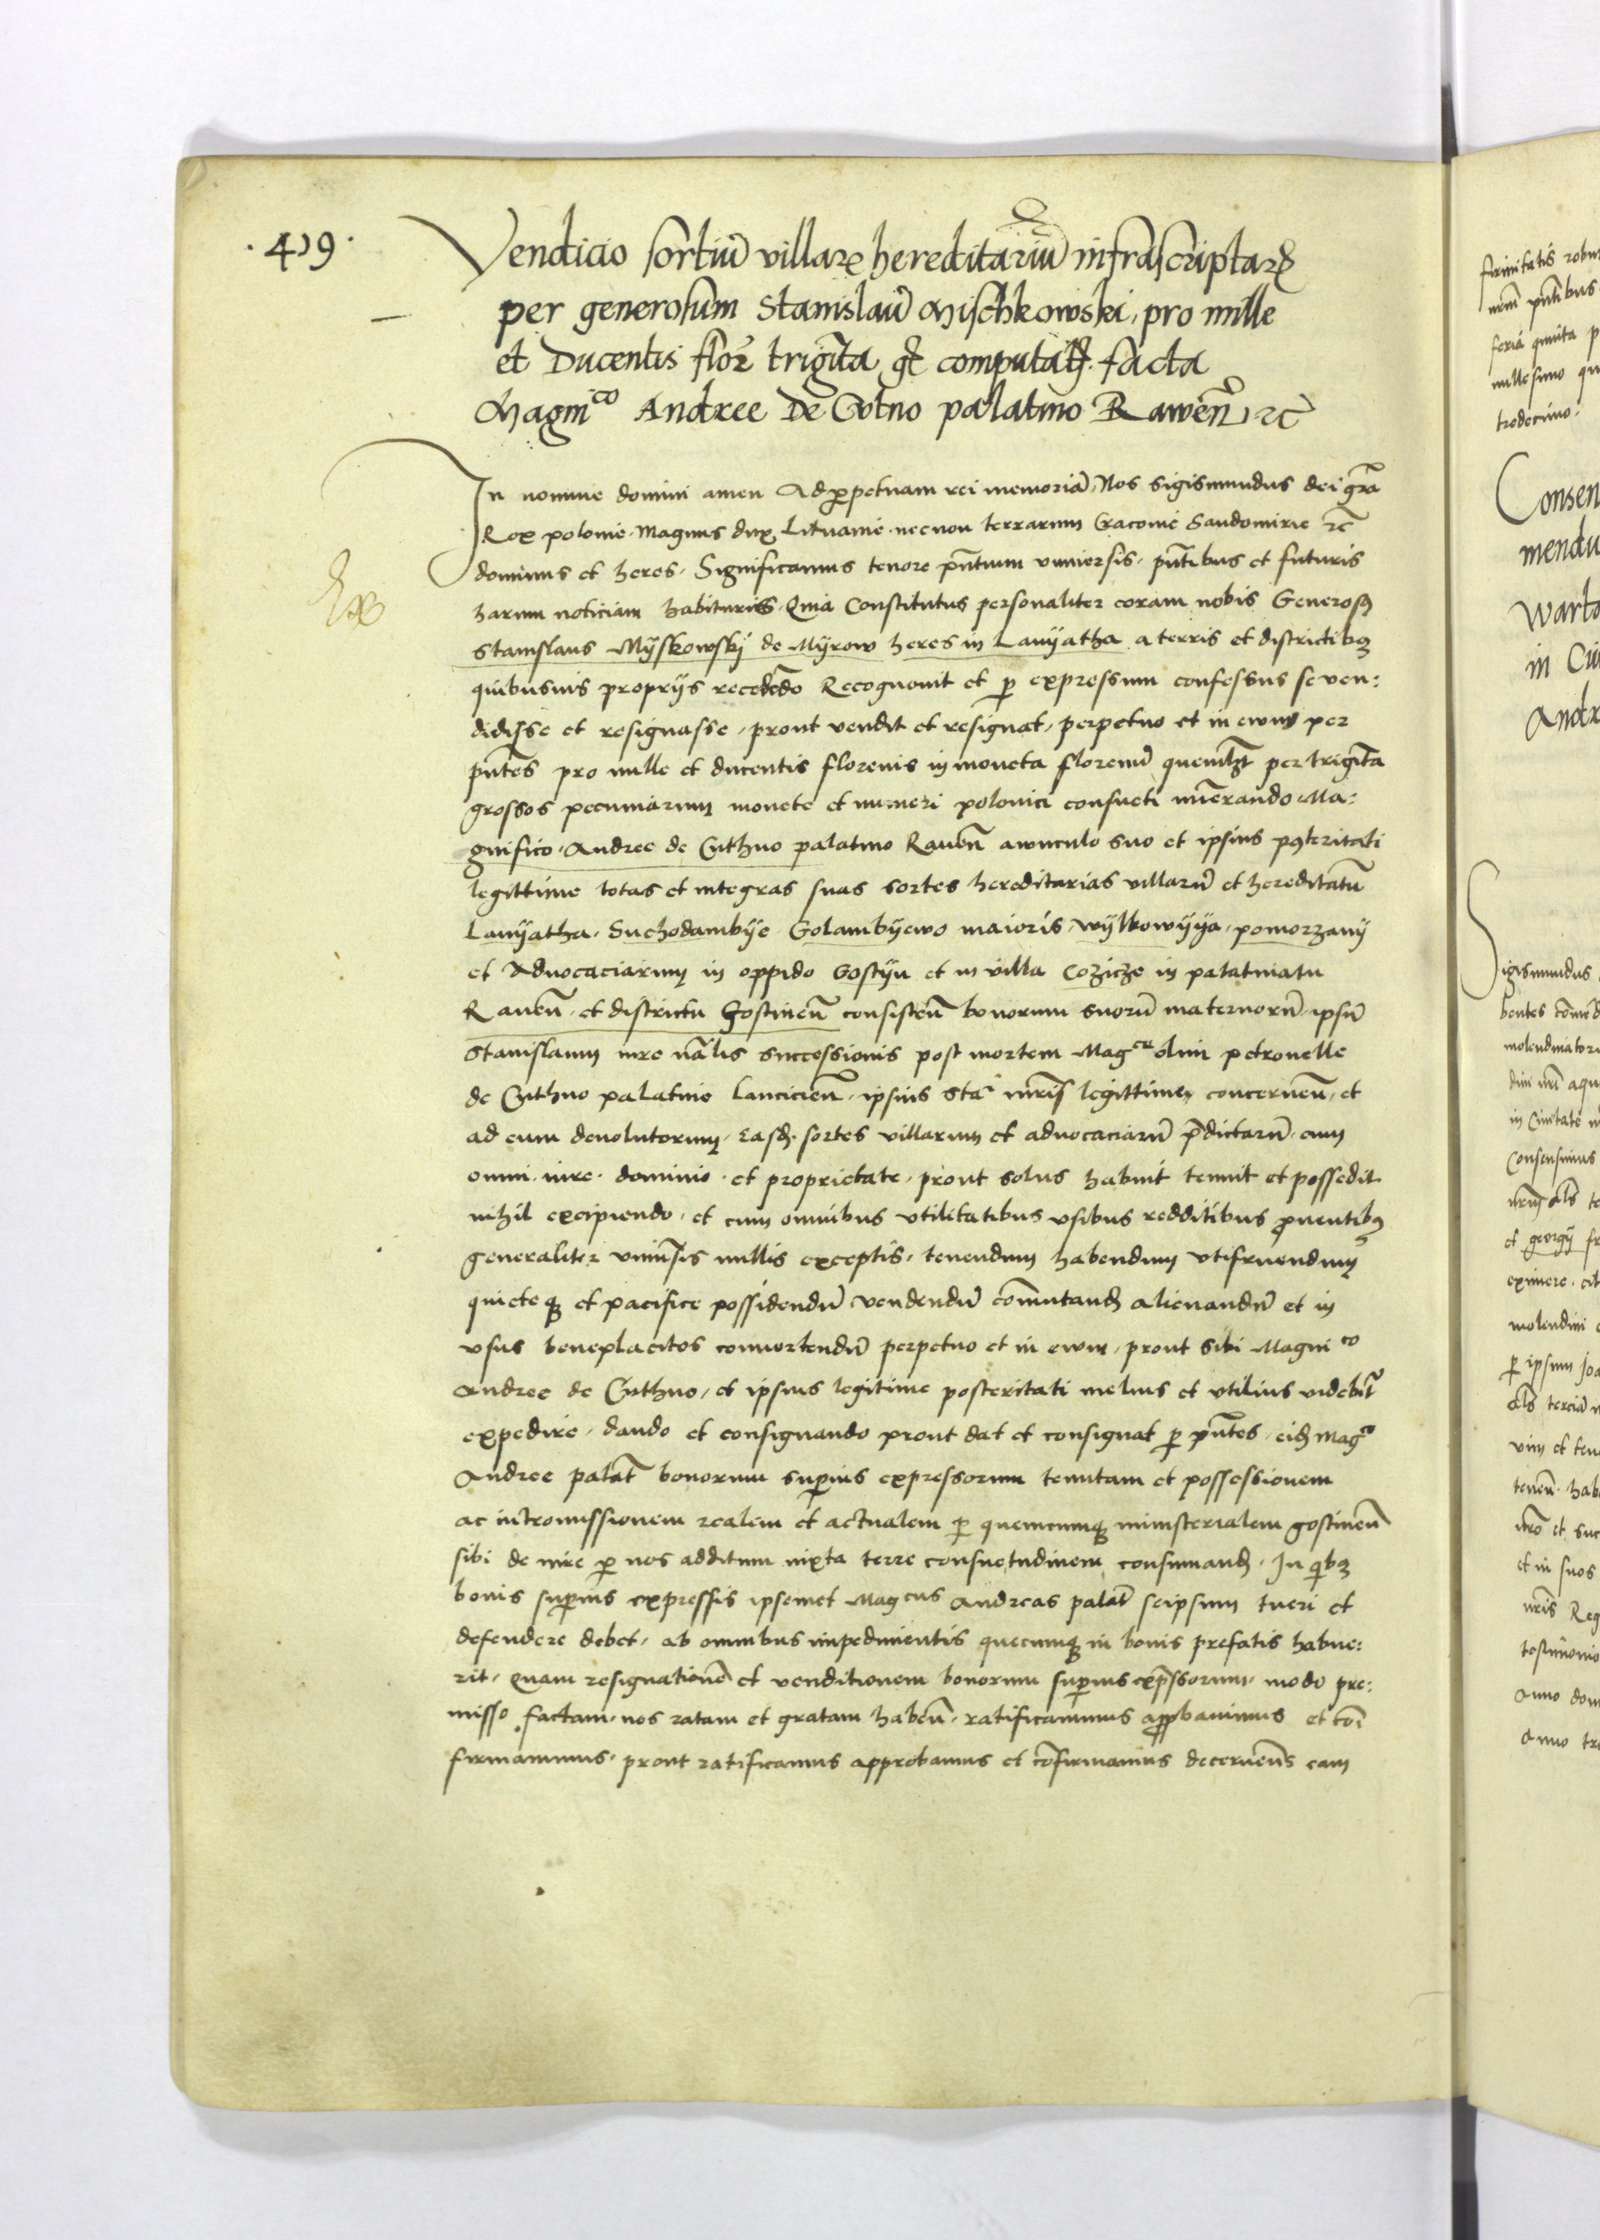 ·419·
Vendicio sortiū villarꝝ hereditariū infrascriptarꝝ
per generosum Stanislaū Mischkowski, pro mille
et Ducentis florꝝ trigīta gr̄ computād. facta
Magni^co Andree De Cutno palatino Rawen̄ ꝛc̄
In nomine domini amen Ad ꝑpetuam rei memoriā. Nos Sigismundus dei grā
Rex polonie. Magnus dux Lituanie. necnon terrarum Cracouie Sandomirie ꝛc̄
dominus et heres. Significamus tenore pn̄tium vniuersis. pn̄tibus et futuris
harum noticiam habituris. Quia Constitutus personaliter coram nobis Generosꝰ
Stanislaus Mÿskowskÿ de Mÿrow heres in Lanÿatha a terris et districtibꝫ
quibusuis proprijs recedēdo Recognouit et ꝑ expressum confessus se ven:
didisse et resignasse, prout vendit et resignat, perpetuo et in ewum per
pn̄tes pro mille et ducentis florenis in moneta florenū quemlꝫt per trigīta
grossos pecuniarum monete et numeri polonici consueti nūerando. Ma:
gnifico. Andree de Cuthno palatino Rauen̄ awunculo suo et ipsius pꝰteritati
legittime totas et integras suas sortes hereditarias villarū et hereditatū
Lanÿatha. Suchodambÿe Golambÿewo maioris, wÿlkowÿya, pomorzanÿ
et Aduocaciarum in oppido Gostÿn et in villa Cozicze in palatinatu
Rauen̄. et districtu Gostinen̄ consisten̄ bonorum suorū maternorū. ipsū
Stanislaum iure nālis successionis post mortem Mag^ce olim petronelle
de Cuthno palatine Lancicien̄. ipsius Stā mr̄is legittime, concernen̄, et
ad eum deuolutorum, easd. sortes villarum et aduocaciarū p̄dictarū. cum
omni. iure. dominio. et proprietate, prout solus habuit tenuit et possedit
nihil excipiendo, et cum omnibus vtilitatibus vsibus redditibus ꝓuentibꝫ
generaliter vniūsis nullis exceptis, tenendum habendum vtifruendum
quieteqꝫ et pacifice possidendū vendendū com̄utand alienandū et in
vsus beneplacitos conuertendū perpetuo et in ewum, prout sibi Magni^co
Andree de Cuthno, et ipsius legitime posteritati melius et vtilius videbit᷑
expedire. dando et consignando prout dat et consignat ꝑ pn̄tes. eid Mag^co
Andree palat̄ bonorum suꝑius expressorum tenutam et possessionem
ac intromissionem realem et actualem ꝑ quemcumqꝫ ministerialem gostinen̄
sibi de iure ꝑ nos additum iuxta terre consuetudinem consumand. In qibꝫ
bonis suꝑius expressis ipsemet Mag^cus Andreas palat̄ seipsum tueri et
defendere debet, ab omnibus impedimentis quecumqꝫ in bonis prefatis habue:
rit, Quam resignationē et venditionem bonorum suꝑius exp̄ssorum. modo pre:
misso factam. nos ratam et gratam haben̄. ratificauimus apꝓbauimus et cō
firmauimus. prout ratificamus approbamus et cōfirmamus decernen̄s eam
firmitatis robur
feria quinta p
millesimo qu
tredecimo.
Consen
mendu
Warta
in Ciui
Andr
Sigismundus
molendinatori
in Ciuitate
Consensimus
et georgÿ fr
eximere. cit
molendini
ꝑ ipsum Joa
vim et ten
tenen̄. hab
et in suos
testimonio
Anno dom
Anno tr